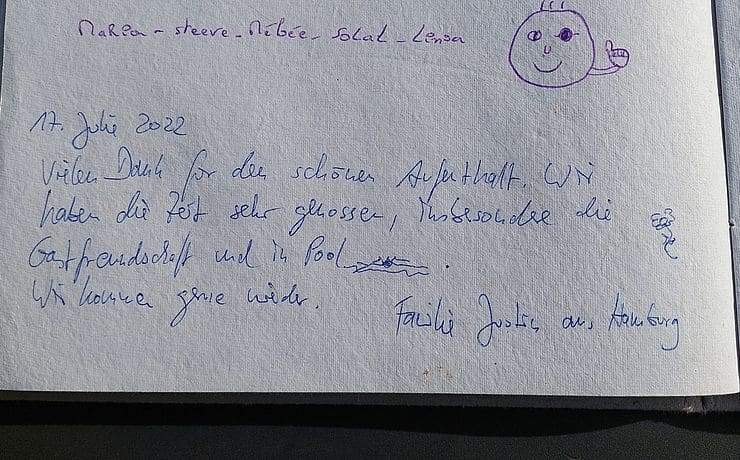 Marea - steeve - Mébée - Solal - Lensa
17. Julie 2022
Vielen Dank für den schönen Aufenthalt. Wir
haben die Zeit sehr genossen, insbesondere die
Gastfreundschaft und in Pool .
Wir kommen gerne wieder.
Familie Justin aus Hamburg